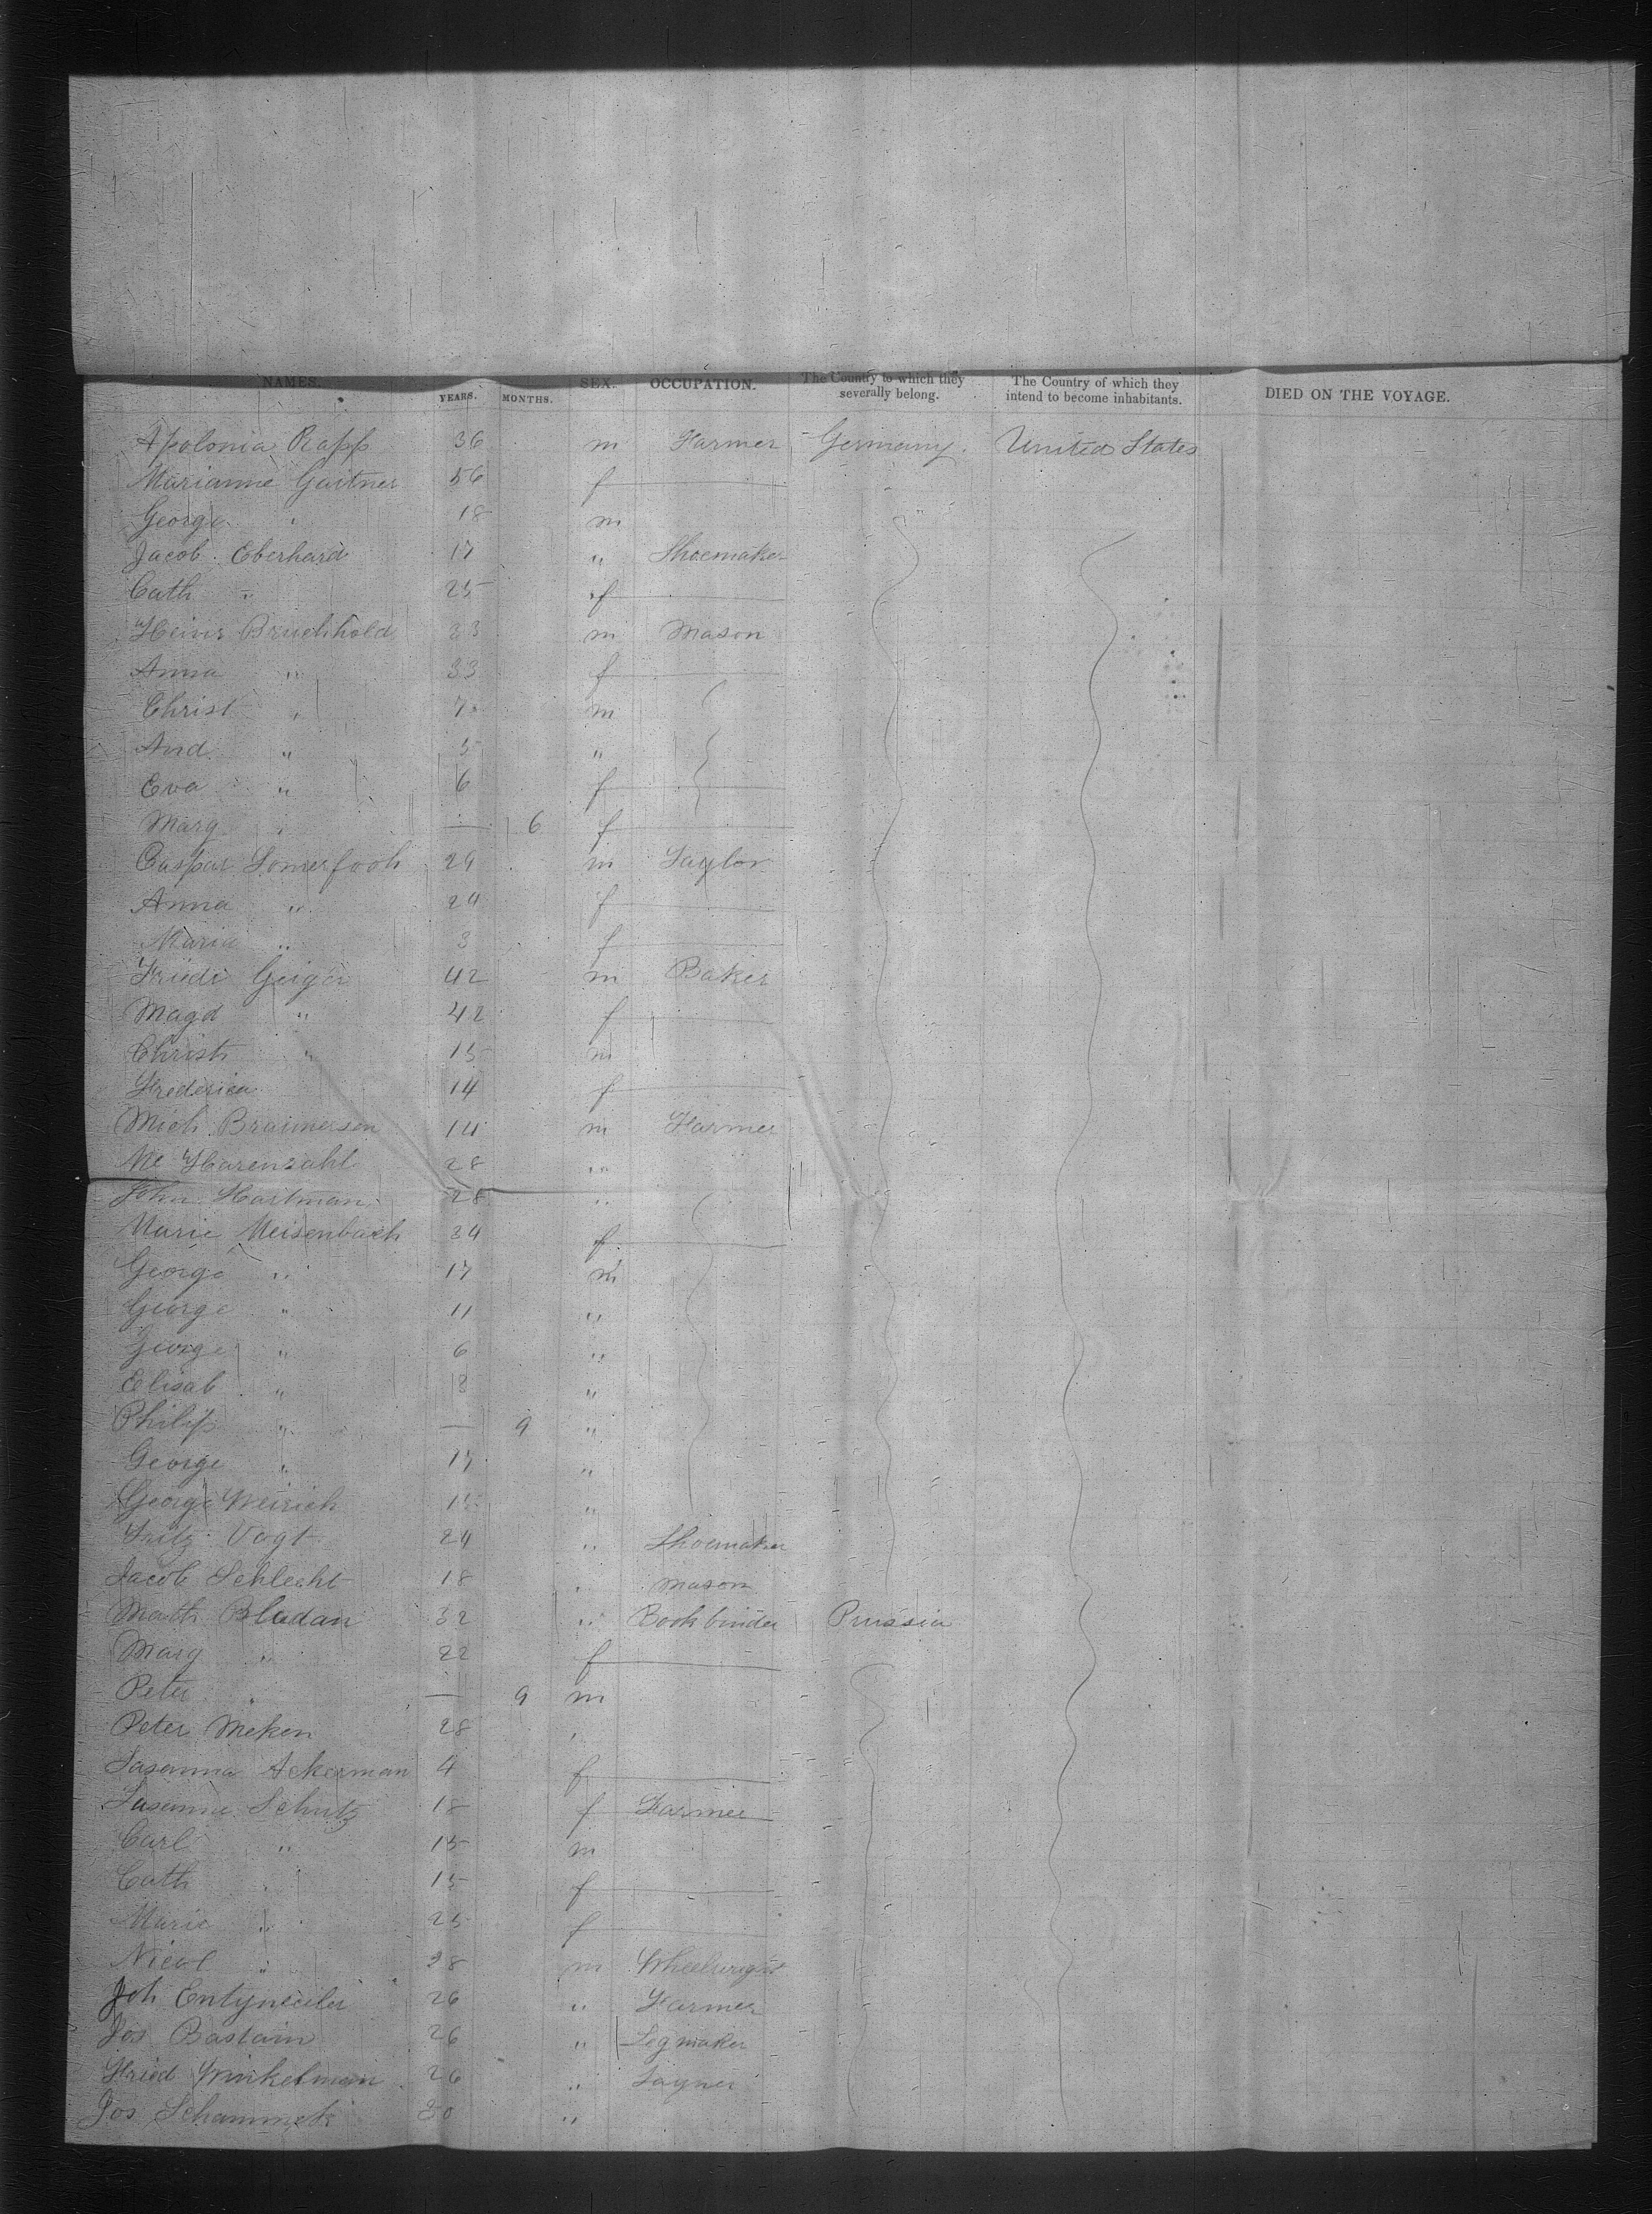 NAMES. YEARS. MONTHS. SEX. OCCUPATION. The Country to which they severally belong. The Country of which they intend to become inhabitants. DIED ON THE VOYAGE.
Apolonia Rapp 36 m Farmer Germany. United States
Marianne Gartner 56 f
George " 18 m
Jacob Eberhard 17 " Shoemaker
Cath " 25 f
Heinr Bruchhold 33 m Mason
Anna " 33 f
Christ " 7 m
And " 5 "
Eva " 6 f
Marg " — 6 f
Caspar Somerfooh 24 m Taylor
Anna " 24 f
Maria " 3 f
Friedr Geiger 42 m Baker
Magd " 42 f
Christ " 15 m
Frederica 14 f
Mich 14 m Farmer
Harenzahl 28 "
John Hartman 28 "
Marie Meisenbach 34 f
George " 17 m
George " 11 "
George " 6 "
Elisab " 8 "
Philip " — 9 "
George " "
George Weirich "
Fritz Vogt 24 " Shoemaker
Jacob Schlecht 18 " Mason
Math Bladan 32 " Bookbinder Prussia
Marg " 22 f
Peter " — 9 m
Peter Meken 28 "
Susanna Ackerman 4 f
Susanne Schutz 18 f Farmer
Carl " 15 m
Cath " 15 f
Marie " 25 f
Nicol " 28 m Wheelwright
Joh 26 " Farmer
Jos Bastain 26 " Segmaker
Fried Winkelman 26 " Joyner
Jos Schammek 30 "